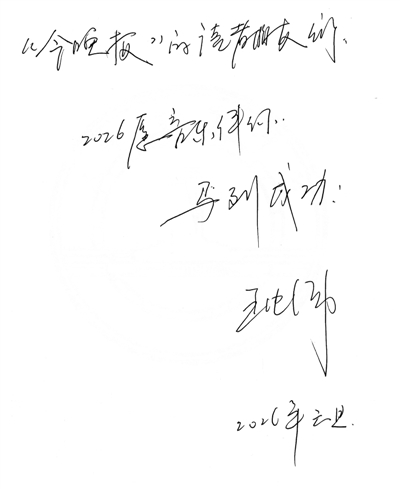 《今晚报》的读者朋友们：
2026愿音乐伴你：
马到成功！
2026年元旦.